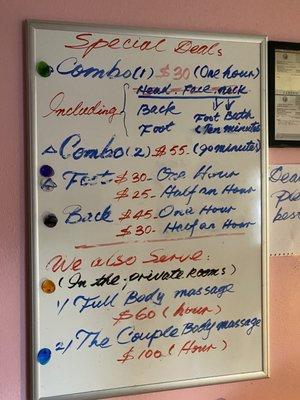 Special Deals
Combo (1) $30 (One hour)
Including
Head - Face - Neck
Back
Foot
Foot Bath
(Ten minutes)
Combo (2) $55. (90 minutes)
Foot $30- One Hour
$25- Half an Hour
Back $45- One Hour
$30- Half an Hour
We also Serve:
(In the private Rooms)
1/ Full Body massage
$60 (hour)
2/ The Couple Body massage
$100 (Hour)
Dear